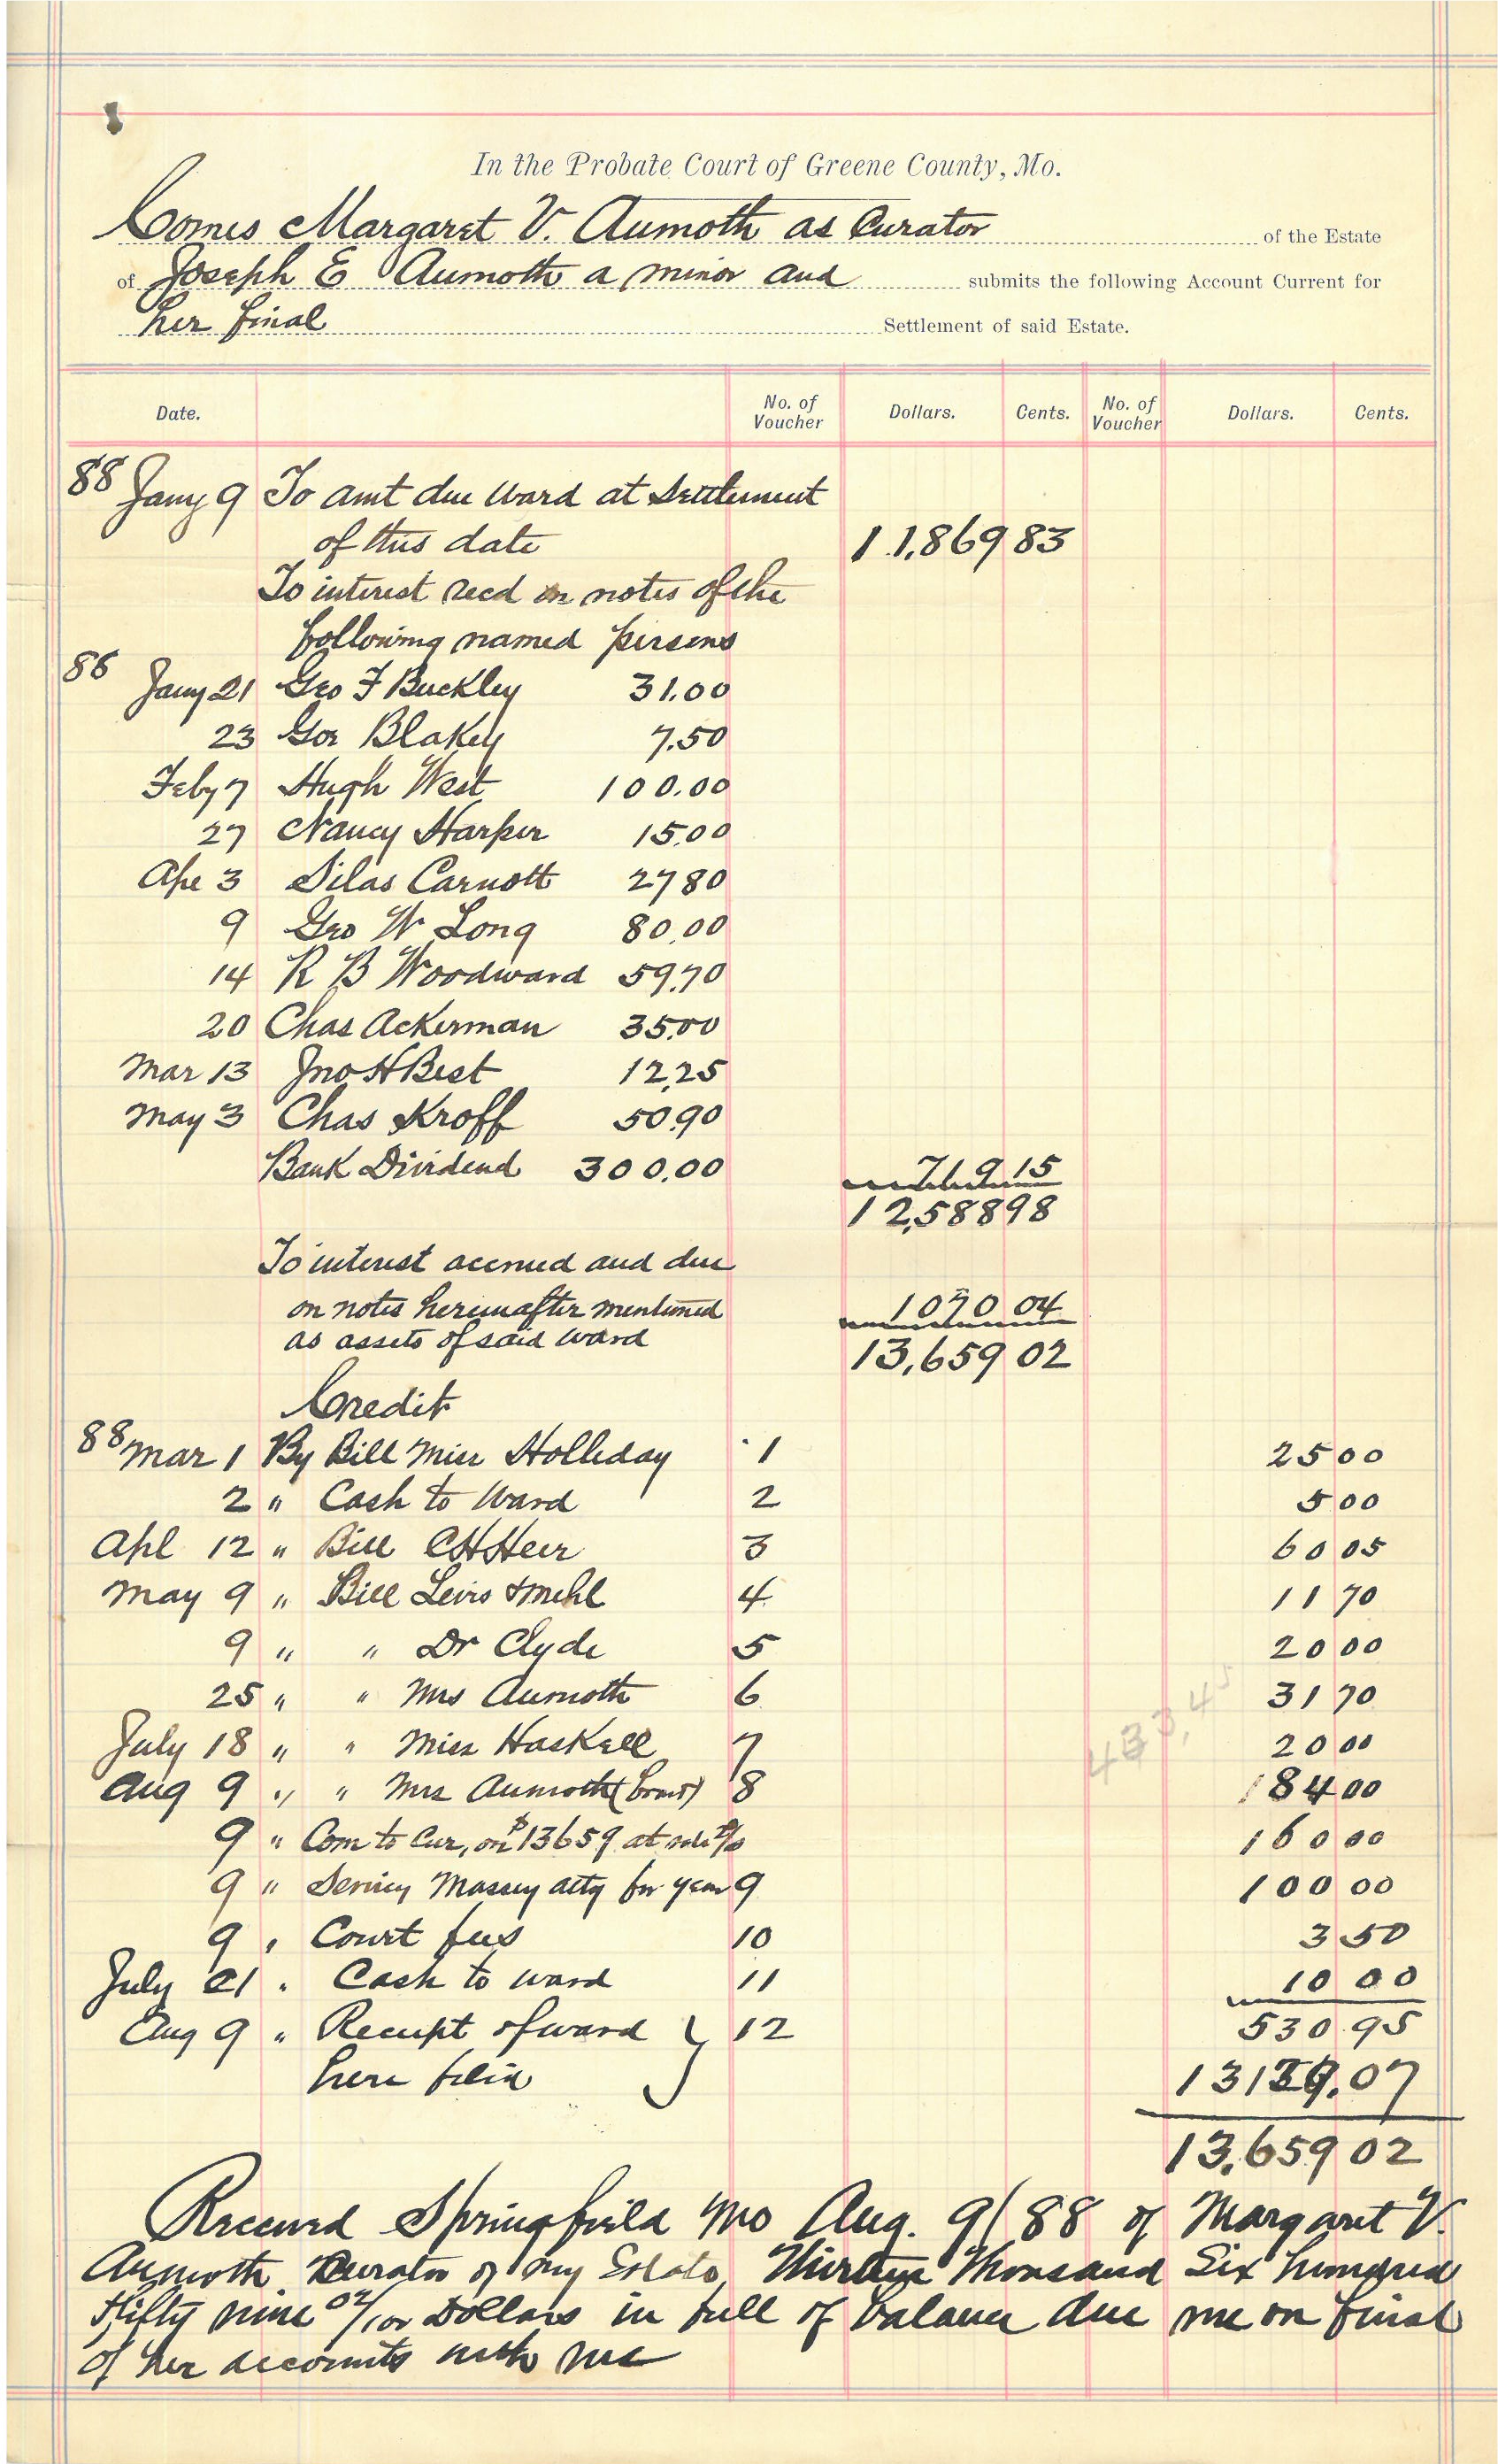 In the Probate Court of Greene County, Mo.
Comes Margaret V. Aumoth as Curator of the Estate
of Joseph E Aumoth a minor and submits the following Account Current for
her final Settlement of said Estate.
Date. No. of Voucher Dollars. Cents. No. of Voucher Dollars. Cents.
88 Jany 9 To amt due Ward at Settlement
of this date 11,869 83
To interest recd on notes of the
following named persons
86
Jany 21 Geo F Buckley 31.00
23 Geo Blakey 7.50
Feby 7 Hugh West 100.00
27 Nancy Harper 15.00
Apr 3 Silas Carnott 27 80
9 Geo W Long 80.00
14 R B Woodward 59.70
20 Chas Ackerman 35.00
Mar 13 Jno H Best 12.25
May 3 Chas Kroff 50.90
Bank Dividend 300.00 719 15
12,588 98
To interest accrued and due
on notes hereinafter mentioned 1070 04
as assets of said ward
13,659 02
Credit
88 Mar 1 By Bill Miss Holliday 1 25 00
2 " Cash to Ward 2 5 00
Apl 12 " Bill CH Heer 3 60 05
May 9 " Bill Levis & Mehl 4 11 70
9 " " Dr Clyde 5 20 00
25 " " Mrs Aumoth 6 31 70
July 18 " " Miss Haskell 7 20 00
Aug 9 " " Mrs Aumoth 8 184 00
433,45
9 " Com to Cur, on $13659 at 160 00
9 " Massey atty for year 9 100 00
9 " Court fees 10 3 50
July 21 " Cash to ward 11 10 00
530 95
Aug 9 " Receipt of ward } 12
here 07
13,659 02
Received Springfield Mo Aug. 9/88 of Margaret V.
Aumoth Curator of my Estate, Thirteen Thousand Six hundred
& fifty nine 02/100 Dollars in full of balance due me on final
of her accounts with me